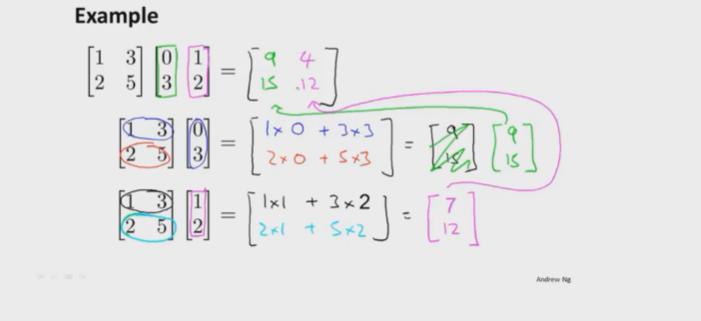 Example
[1 3 2 5] [0 3] [1 2] = [9 4 15 .12]
[1 3 2 5] [0 3] = [1x0 + 3x3 2x0 + 5x3] = [9 15] [9 15]
[1 3 2 5] [1 2] = [1x1 + 3x2 2x1 + 5x2] = [7 12]
Andrew Ng